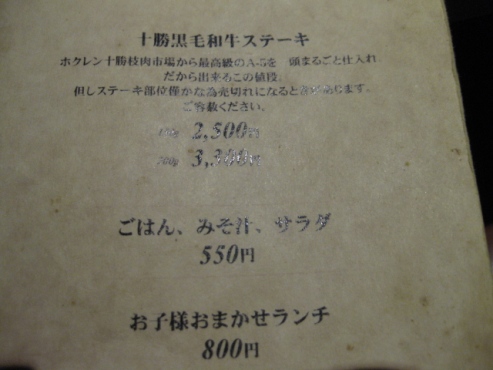 十勝黒毛和牛ステーキ
ホクレン十勝枝肉市場から最高級のA-5を 頭まるごと仕入れ
だから出来るこの値段。
但しステーキ部位僅かな為売切れになるときがあります。
ご容赦ください。
2,500円
3,300円
ごはん、みそ汁、サラダ
550円
お子様おまかせランチ
800円